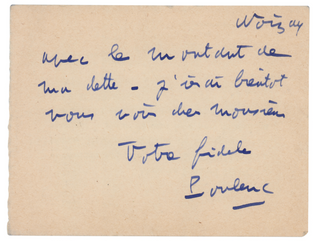 Noizay
avec le montant de
ma dette – j'irai bientôt
vous voir cher monsieur
Votre fidèle
Poulenc